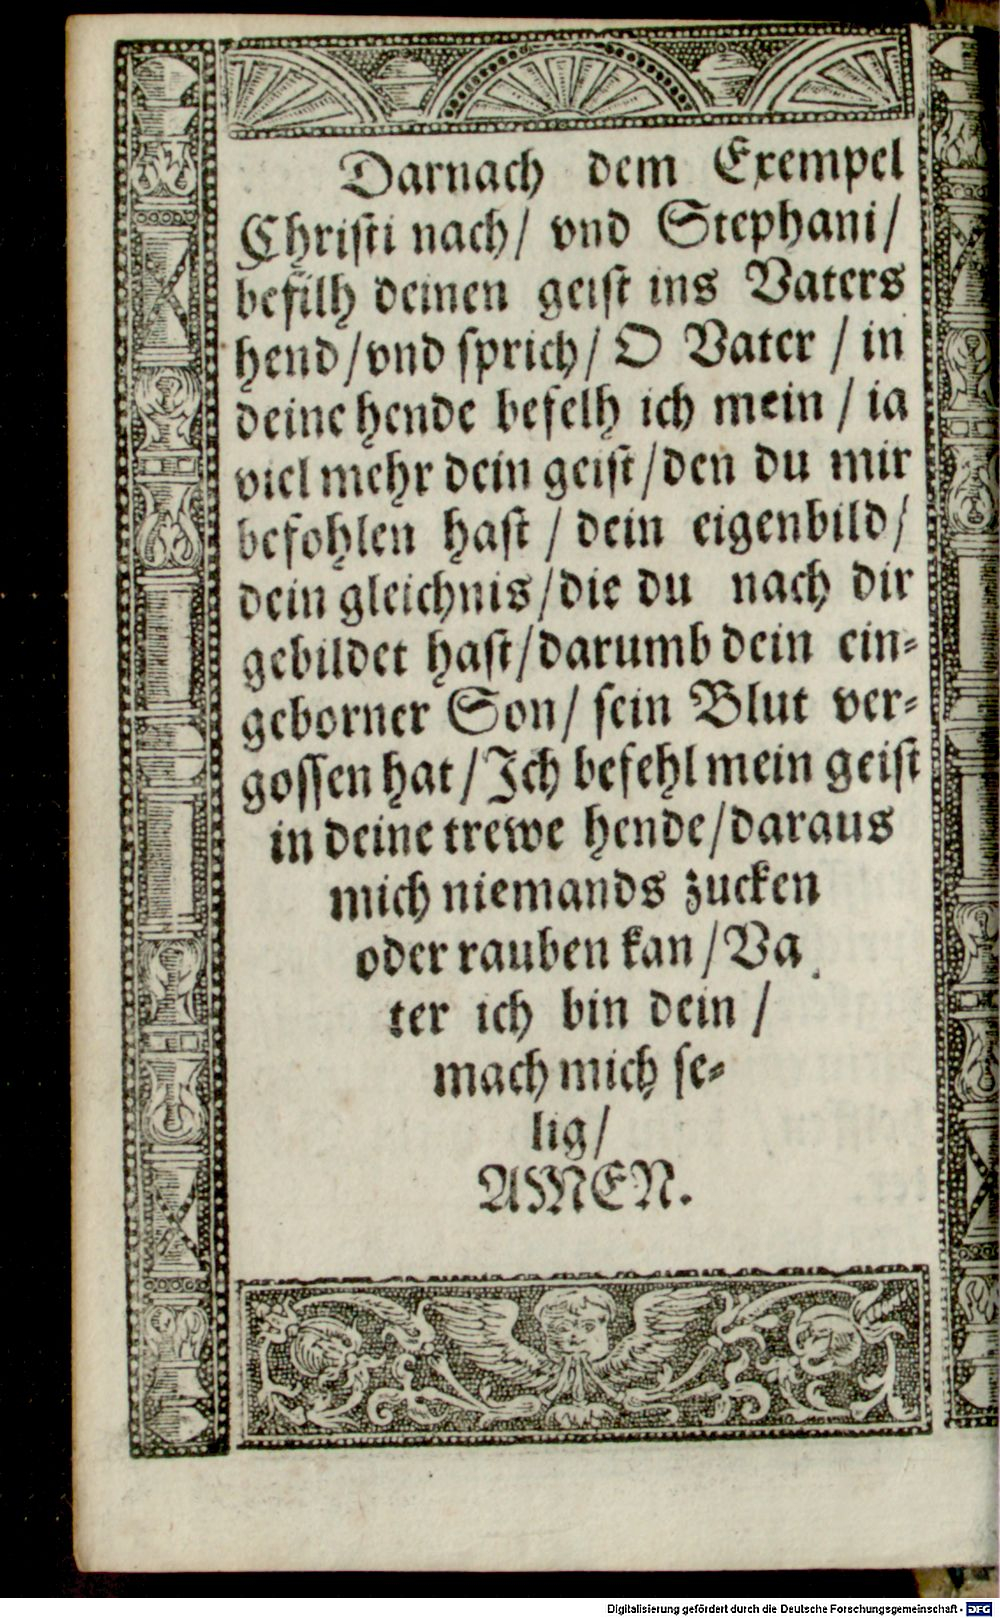 Darnach dem Exempel
Christi nach/ vnd Stephani/
befilh deinen geist ins Vaters
hend/vnd sprich/ O Vater / in
deine hende befelh ich mein / ia
viel mehr dein geist/den du mir
befohlen hast / dein eigenbild/
dein gleichnis/die du nach dir
gebildet hast/darumb dein ein-
geborner Son/ sein Blut ver-
gossen hat/Ich befehl mein geist
in deine trewe hende/daraus
mich niemands zucken
oder rauben kan/Va
ter ich bin dein /
mach mich se-
lig/
AMEN.
Digitalisierung gefördert durch die Deutsche Forschungsgemeinschaft - DFG